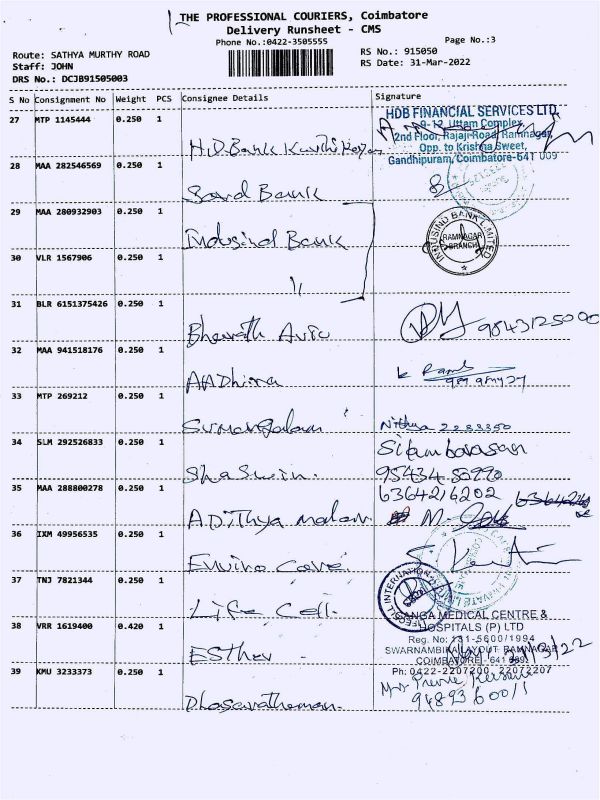 THE PROFESSIONAL COURIERS, Coimbatore
Delivery Runsheet - CMS
Phone No.:0422-3505555
Page No.:3
Route: SATHYA MURTHY ROAD
RS No.: 915050
Staff: JOHN
RS Date: 31-Mar-2022
DRS No.: DCJB91505003
S No Consignment No Weight PCS Consignee Details Signature
27 MTP 1145444 0.250 1
HDB FINANCIAL SERVICES LTD.
9-12, Uttam Complex,
2nd Floor, Rajaji Road, Ramnagar,
Opp. to Krishna Sweet,
Gandhipuram, Coimbatore-641 009
28 MAA 282546569 0.250 1
Bank
29 MAA 280932903 0.250 1
Indusind Bank
INDUSIND BANK LIMITED
RAMNAGAR
BRANCH
30 VLR 1567906 0.250 1
"
31 BLR 6151375426 0.250 1
Bharath
9843125000
32 MAA 941518176 0.250 1
AADhira
33 MTP 269212 0.250 1
Sumangalam
Nithya 2233350
34 SLM 292526833 0.250 1
Silambarasan
Shaswin.
35 MAA 288800278 0.250 1
6364216202
ADIThya
36 IXM 49956535 0.250 1
Enviro Care
37 TNJ 7821344 0.250 1
Life Cell.
38 VRR 1619400 0.420 1
GANGA MEDICAL CENTRE &
HOSPITALS (P) LTD
Reg. No: 181-5600/1994
SWARNAMBIKA LAYOUT RAMNAGAR
COIMBATORE - 641 009
Esther
39 KMU 3233373 0.250 1
Ph: 0422-2207200, 22072207
Dhasaratharaman.